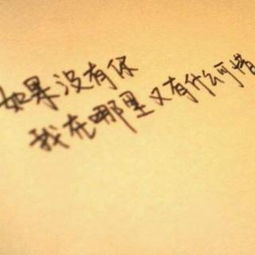 如果没有你
我在哪里又有什么可惜